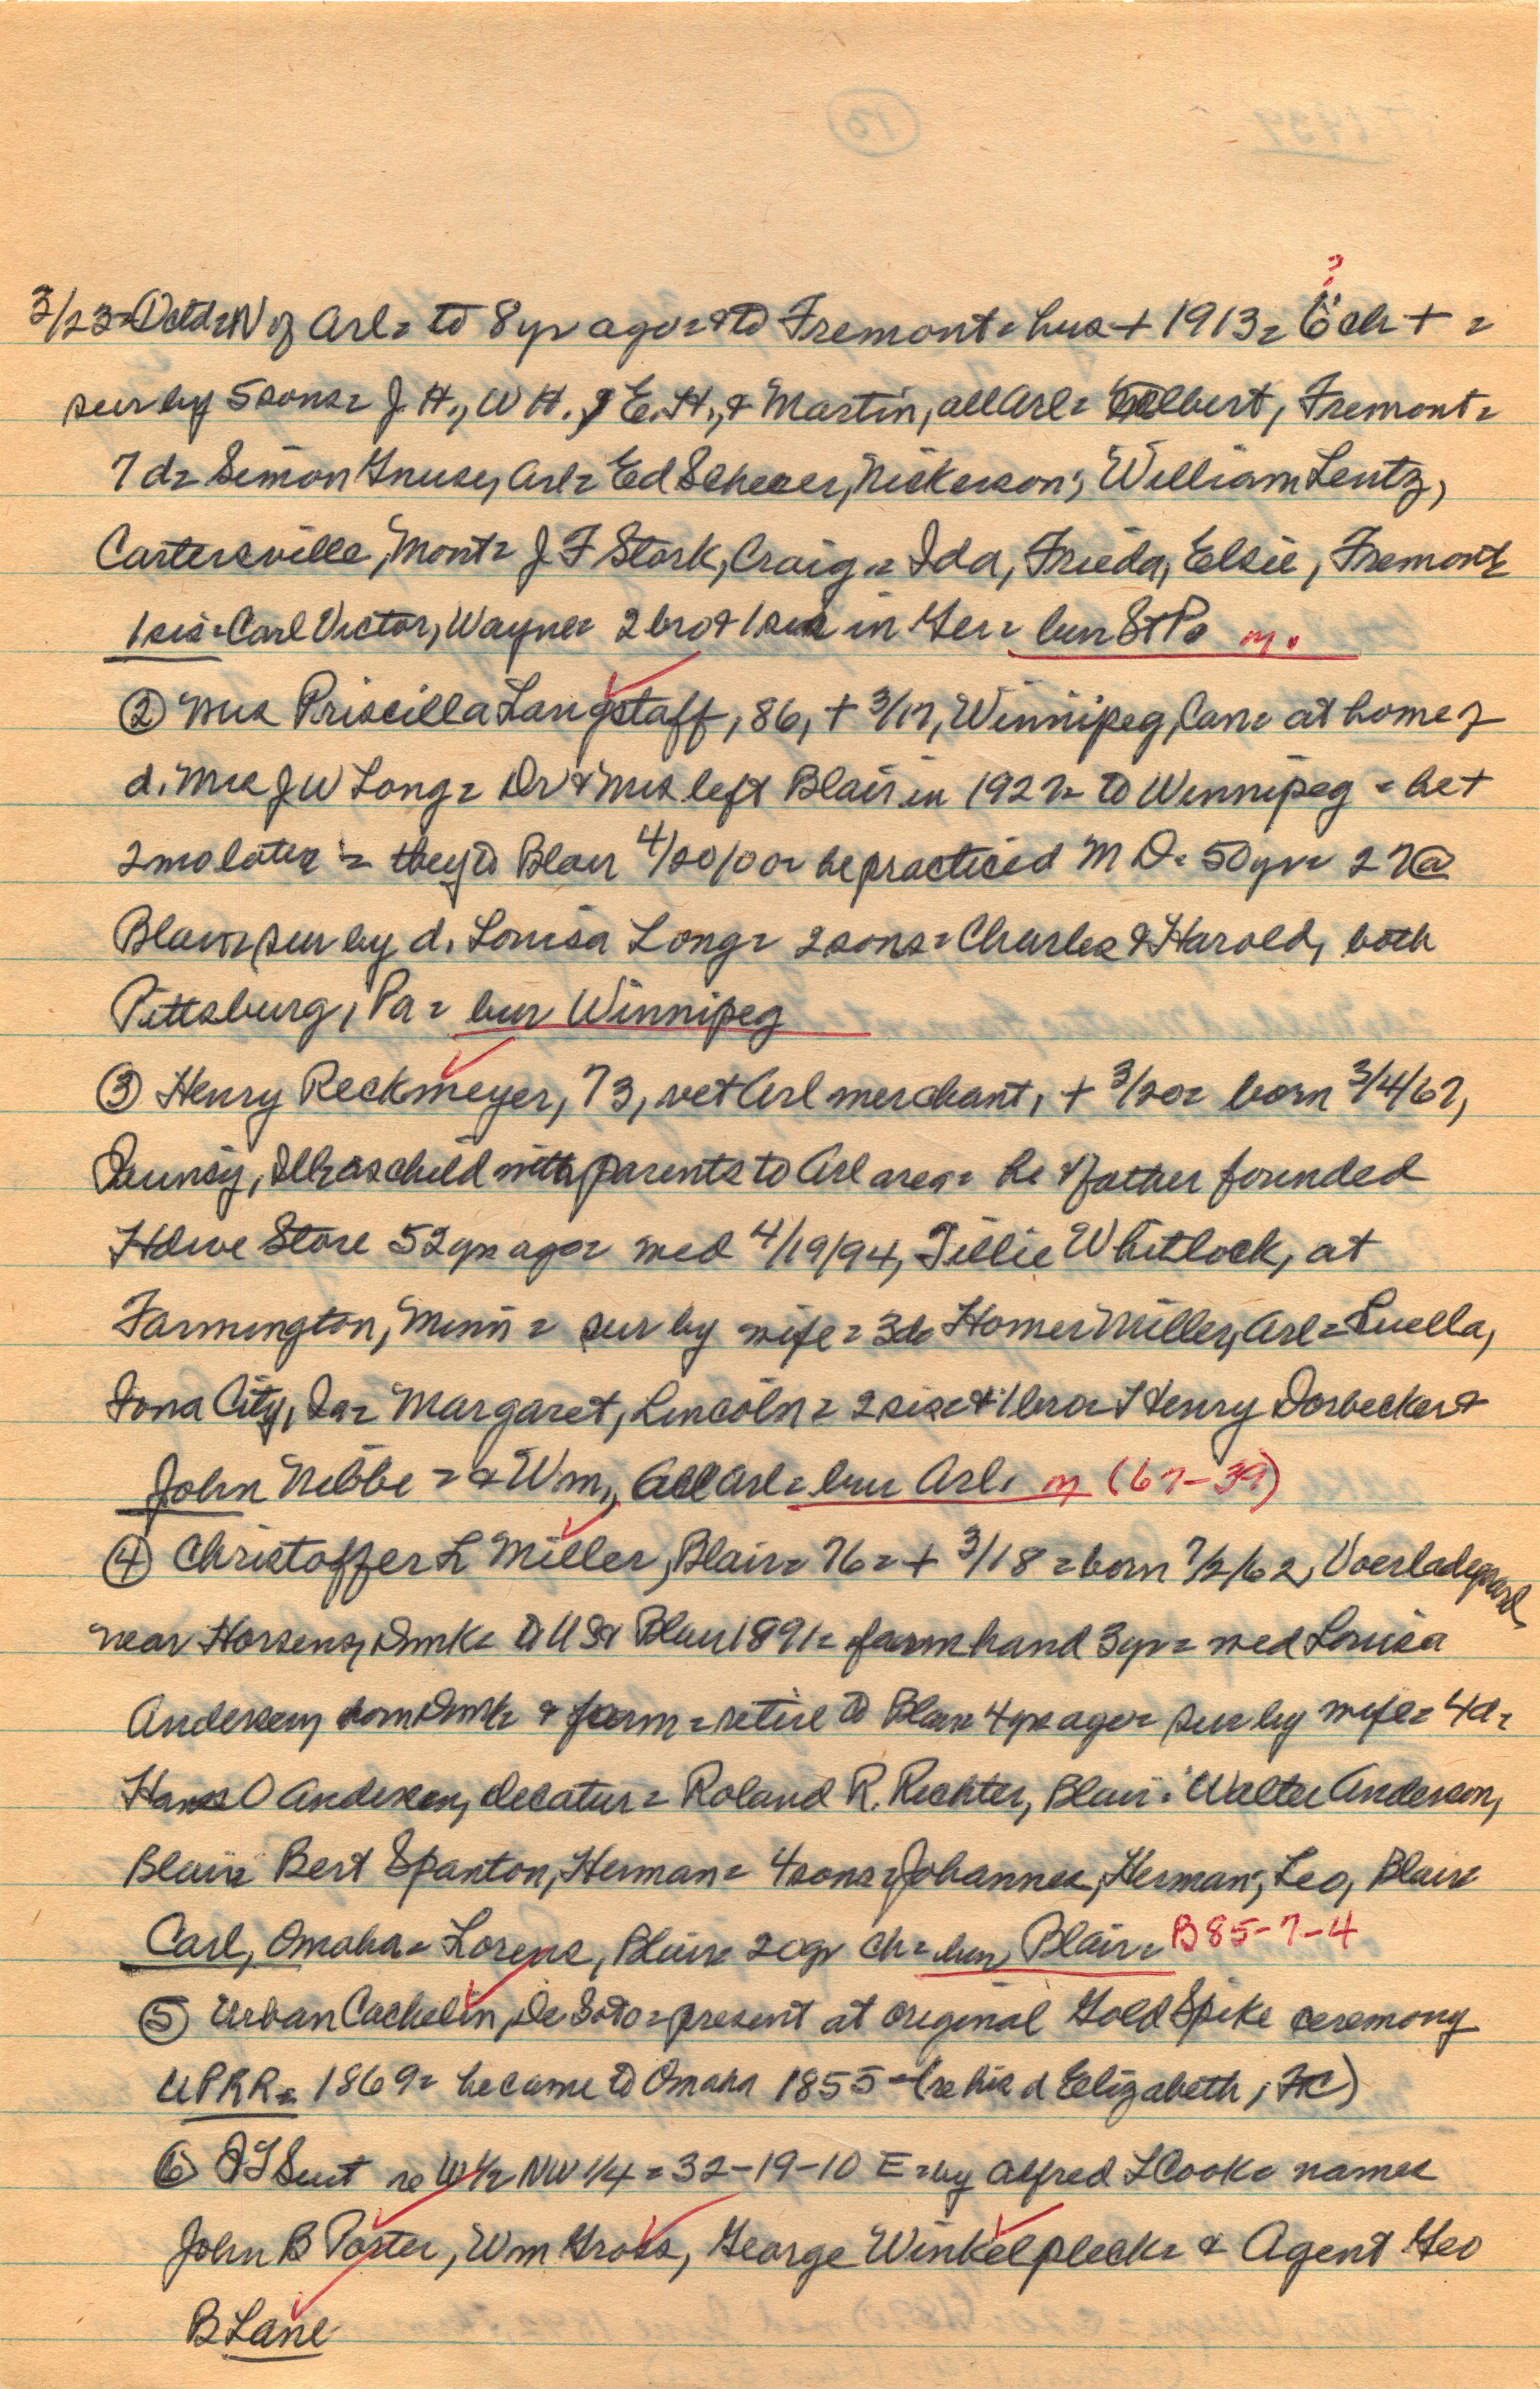 3/23= Octd= N of Arl= to 8 yr ago= & to Fremont= hus + 1913= 6 ch + =
?
sur by 5 sons= J. H., W H., E. H., & Martin, all Arl= Elbert, Fremont=
7 d= Simon Gnuse, Arl= Ed Scheer, Nickerson; William Lentz,
Cartersville, Mont= J F Stork, Craig= Ida, Frieda, Elsie, Fremont
1 sis= Carl Victor, Wayne= 2 bro & 1 sis in Ger= bur St P m.
② Mrs Priscilla Langstaff, 86, + 3/17, Winnipeg, Can= at home of
d. Mrs J W Long= Dr & Mrs left Blair in 1927= to Winnipeg = he +
2 mo later = they to Blair 4/20/00= he practiced M D= 50 yr= 27 @
Blair= sur by d. Louisa Long= 2 sons= Charles & Harold, both
Pittsburg, Pa= bur Winnipeg
③ Henry Reckmeyer, 73, ret Arl merchant, + 3/20= born 3/4/67,
Quincy, Ill= as child with parents to Arl area= he & father founded
Hdwe Store 52 yr ago= wed 4/19/94, Tillie Whitlock, at
Farmington, Minn= sur by wife= 3 d= Homer Miller, Arl= Luella,
Iowa City, Ia= Margaret, Lincoln= 2 sis & 1 bro= Henry Dorbecker &
John Nibbe= & Wm., all Arl= bur Arl. m (67-39)
④ Christoffer L Miller, Blair= 76= + 3/18= born 7/2/62, Voerladegaard
near Horsens, Dmk= to US & Blair 1891= farm hand 3 yr= wed Louisa
Andersen, born Dmk & farm= retire to Blair 4 yr ago= sur by wife= 4 d=
Hans O Andersen, Decatur= Roland R. Richter, Blair= Walter Anderson,
Blair= Bert Spanton, Herman= 4 sons= Johannes, Herman; Leo, Blair=
Carl, Omaha= Lorens, Blair= 20 gr ch= bur Blair= B85-7-4
⑤ Urban Cachelin, De Soto= present at original Gold Spike ceremony
UPRR= 1869= he came to Omaha 1855= (re his d Elizabeth, FC)
⑥ Suit re W 1/2 NW 1/4= 32-19-10 E= by Alfred L Cook= names
John B Porter, Wm Gross, George Winkelpleck= & Agent Geo
B Lane